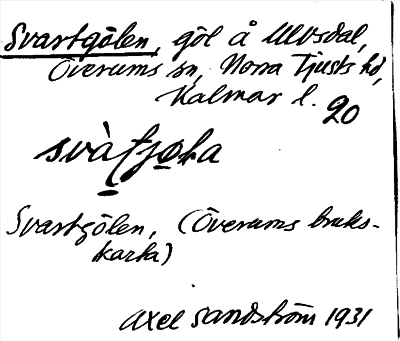 Svartgölen, göl å Ulvsdal,
Överums sn, Norra Tjusts hd,
Kalmar l.
20
Svartgölen, (Överums bruks-
karta)
Axel Sandström 1931